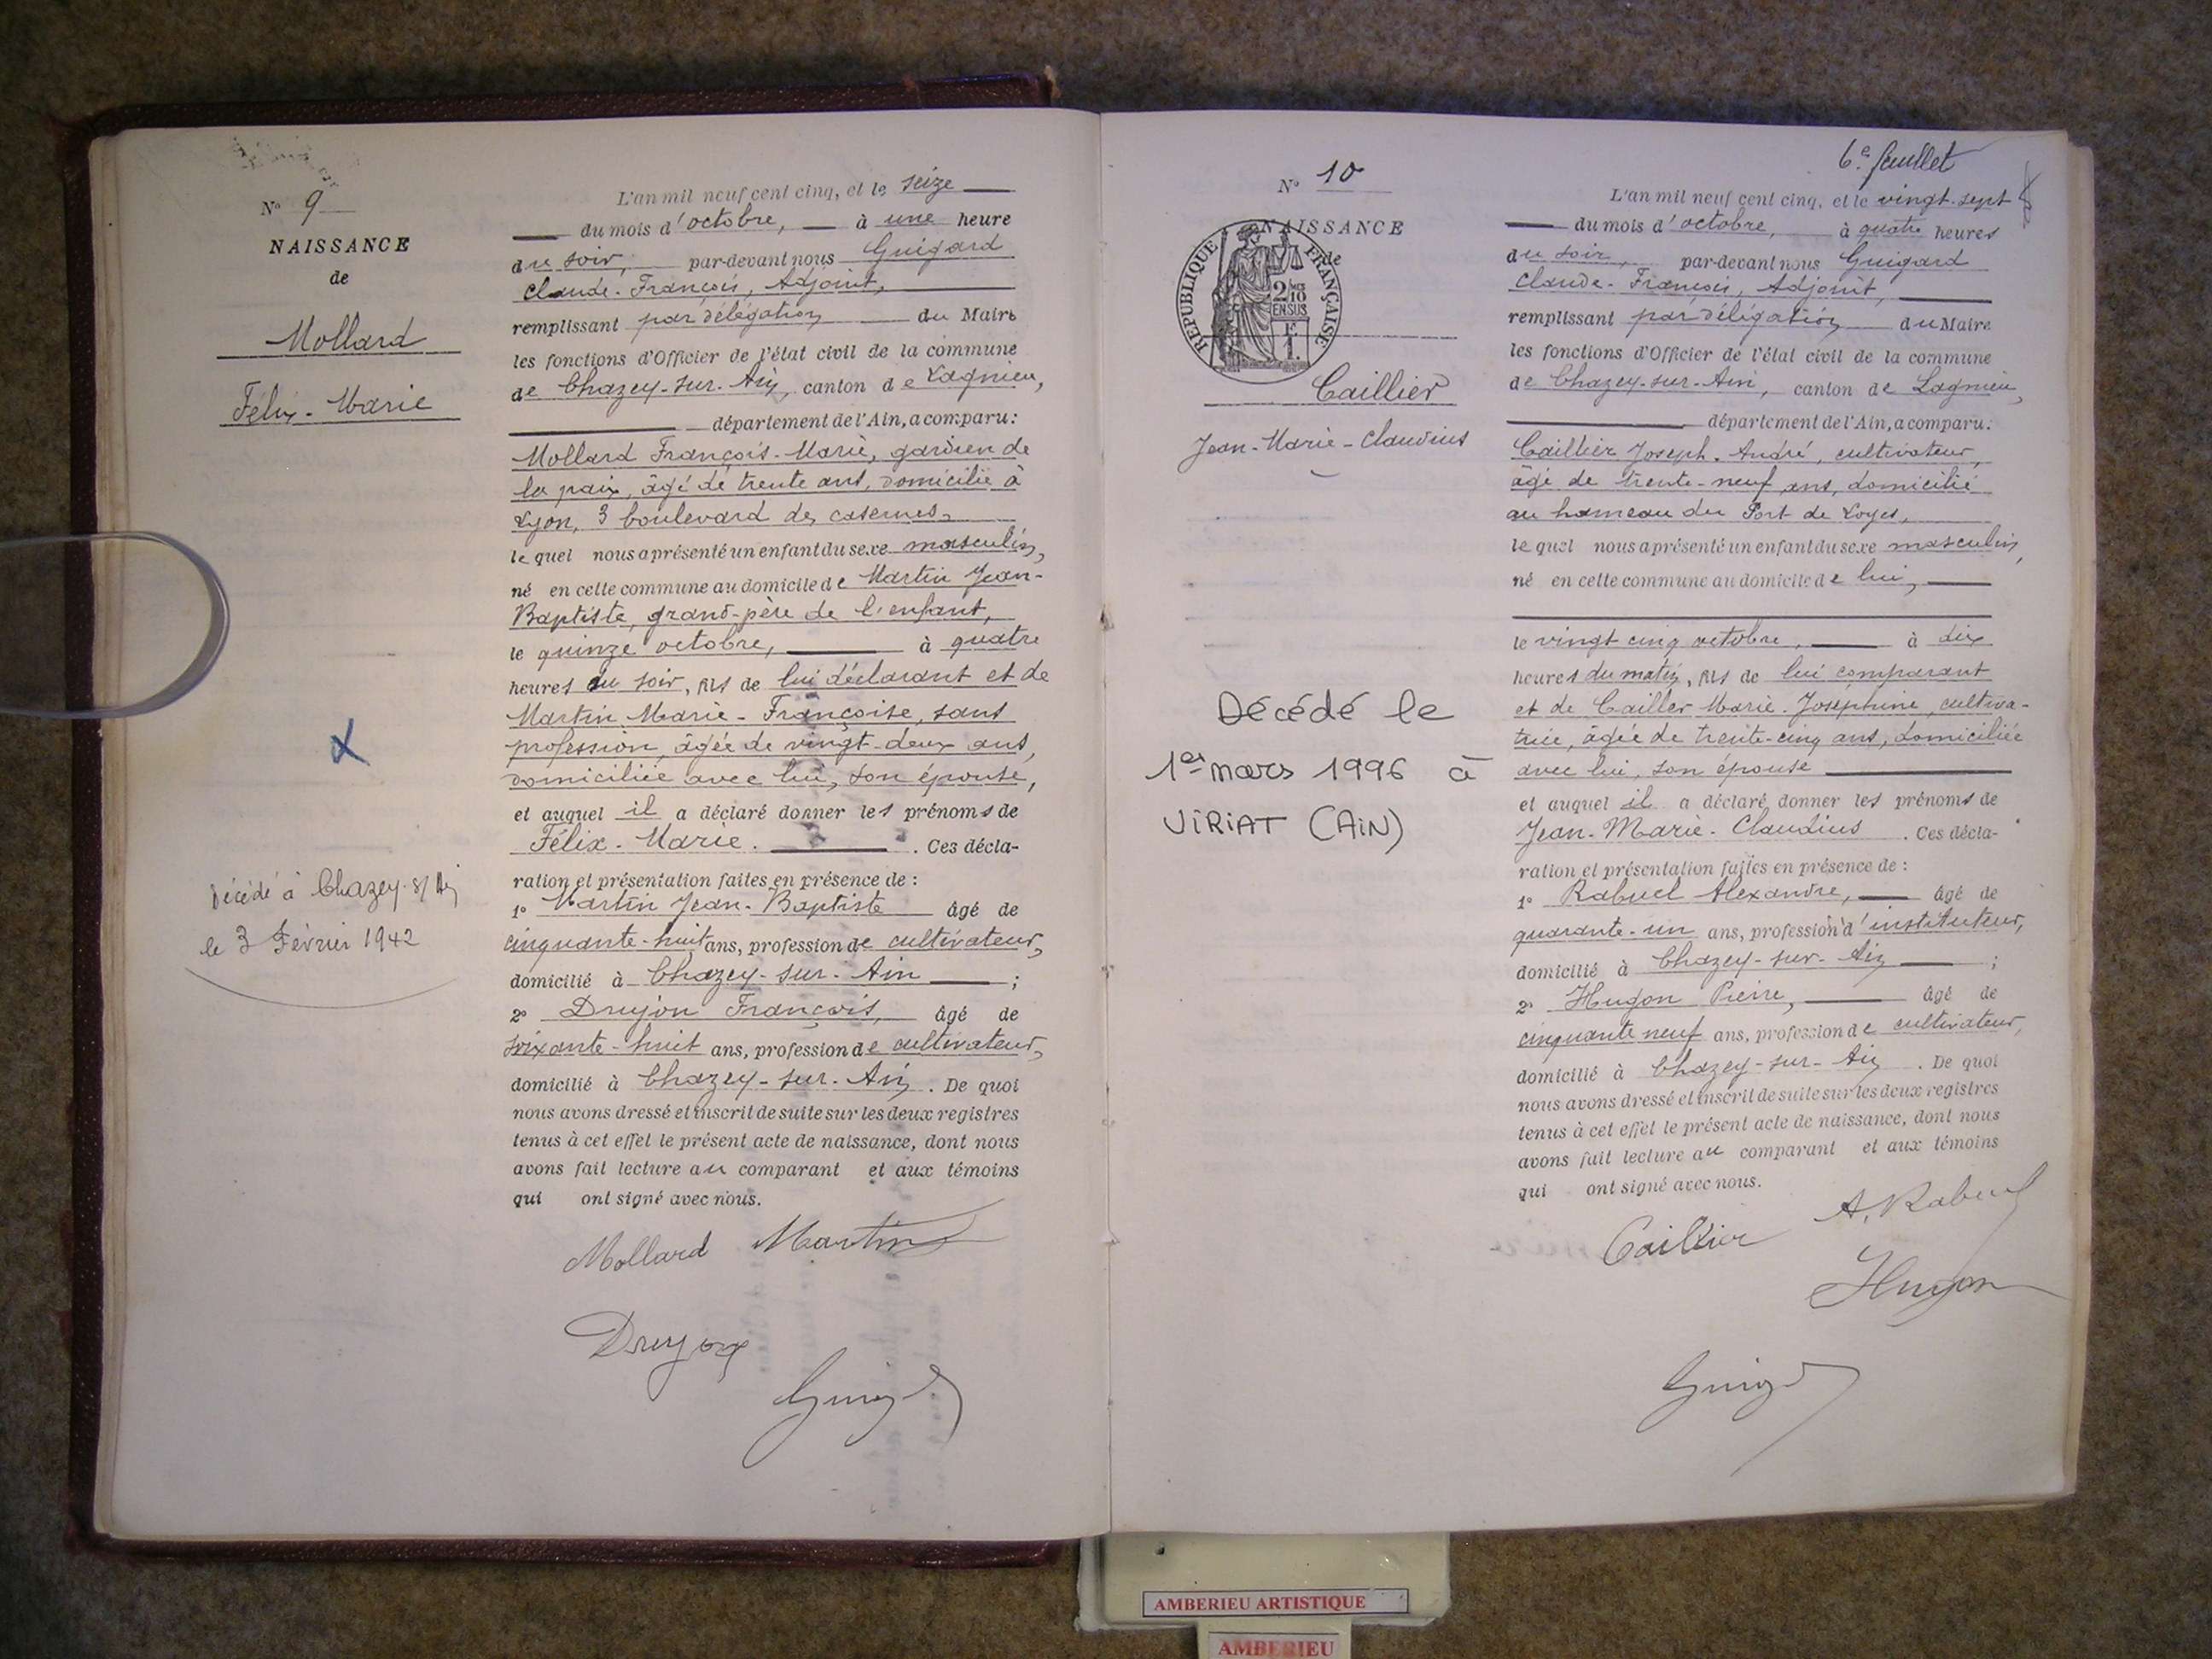 N° 9
NAISSANCE
de
Mollard
Félix-Marie
Décédé à Chazey-s/Ain
le 3 Février 1942
L'an mil neuf cent cinq, et le seize
du mois d'octobre, à une heure
du soir, par-devant nous Guigard
Claude-François, Adjoint,
remplissant par délégation du Maire
les fonctions d'Officier de l'état civil de la commune
de Chazey-sur-Ain, canton de Lagnieu,
département de l'Ain, a comparu:
Mollard François-Marie, gardien de
la paix, âgé de trente ans, domicilié à
Lyon, 3 boulevard des casernes,
lequel nous a présenté un enfant du sexe masculin,
né en cette commune au domicile de Martin Jean-
Baptiste, grand-père de l'enfant,
le quinze octobre, à quatre
heures du soir, fils de lui déclarant et de
Martin Marie-Françoise, sans
profession, âgée de vingt-deux ans,
domiciliée avec lui, son épouse,
et auquel il a déclaré donner les prénoms de
Félix-Marie. Ces décla-
ration et présentation faites en présence de :
1° Martin Jean-Baptiste âgé de
cinquante-huit ans, profession de cultivateur,
domicilié à Chazey-sur-Ain ;
2° Drujon François, âgé de
soixante-huit ans, profession de cultivateur,
domicilié à Chazey-sur-Ain. De quoi
nous avons dressé et inscrit de suite sur les deux registres
tenus à cet effet le présent acte de naissance, dont nous
avons fait lecture au comparant et aux témoins
qui ont signé avec nous.
Mollard Martin
Drujon
Guigard
6e feuillet
N° 10
NAISSANCE
de
REPUBLIQUE FRANÇAISE
2/10
EN SUS
Caillier
Jean-Marie-Claudius
Décédé le
1er mars 1996 à
VIRIAT (AIN)
L'an mil neuf cent cinq, et le vingt-sept
du mois d'octobre, à quatre heures
du soir, par-devant nous Guigard
Claude-François, Adjoint,
remplissant par délégation du Maire
les fonctions d'Officier de l'état civil de la commune
de Chazey-sur-Ain, canton de Lagnieu,
département de l'Ain, a comparu:
Caillier Joseph-André, cultivateur,
âgé de trente-neuf ans, domicilié
au hameau du Port de Loyes,
lequel nous a présenté un enfant du sexe masculin,
né en cette commune au domicile de lui,
le vingt cinq octobre, à dix
heures du matin, fils de lui comparant
et de Cailler Marie-Joséphine, cultiva-
trice, âgée de trente-cinq ans, domiciliée
avec lui, son épouse
et auquel il a déclaré donner les prénoms de
Jean-Marie-Claudius. Ces décla-
ration et présentation faites en présence de :
1° Rabuel Alexandre, âgé de
quarante-un ans, profession d'instituteur,
domicilié à Chazey-sur-Ain ;
2° Hugon Pierre, âgé de
cinquante neuf ans, profession de cultivateur,
domicilié à Chazey-sur-Ain. De quoi
nous avons dressé et inscrit de suite sur les deux registres
tenus à cet effet le présent acte de naissance, dont nous
avons fait lecture au comparant et aux témoins
qui ont signé avec nous.
A. Rabuel
Caillier
Hugon
Guigard
AMBERIEU ARTISTIQUE
AMBERIEU